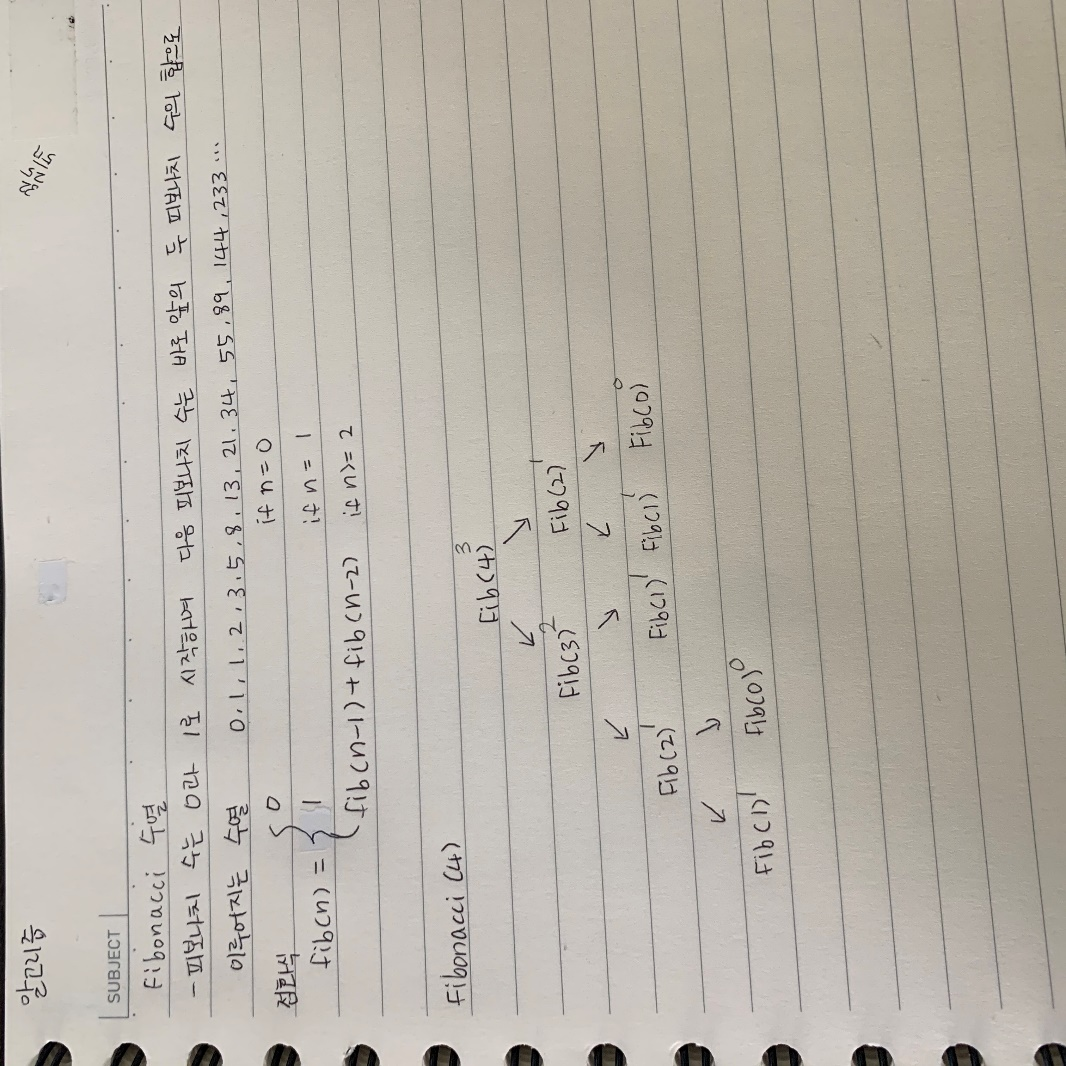 알고리즘
SUBJECT
fibonacci 수열
- 피보나치 수는 0과 1로 시작하며 다음 피보나치 수는 바로 앞의 두 피보나치 수의 합으로
이루어지는 수열 0, 1, 1, 2, 3, 5, 8, 13, 21, 34, 55, 89, 144, 233 ...
점화식 0 if n = 0
fib(n) = { 1 if n = 1
fib(n-1) + fib(n-2) if n >= 2
Fibonacci (4)
Fib(4)³
↙ ↘
Fib(3)² Fib(2)¹
↙ ↘ ↙ ↘
Fib(2)¹ Fib(1)¹ Fib(1)¹ Fib(0)⁰
↙ ↘
Fib(1)¹ Fib(0)⁰